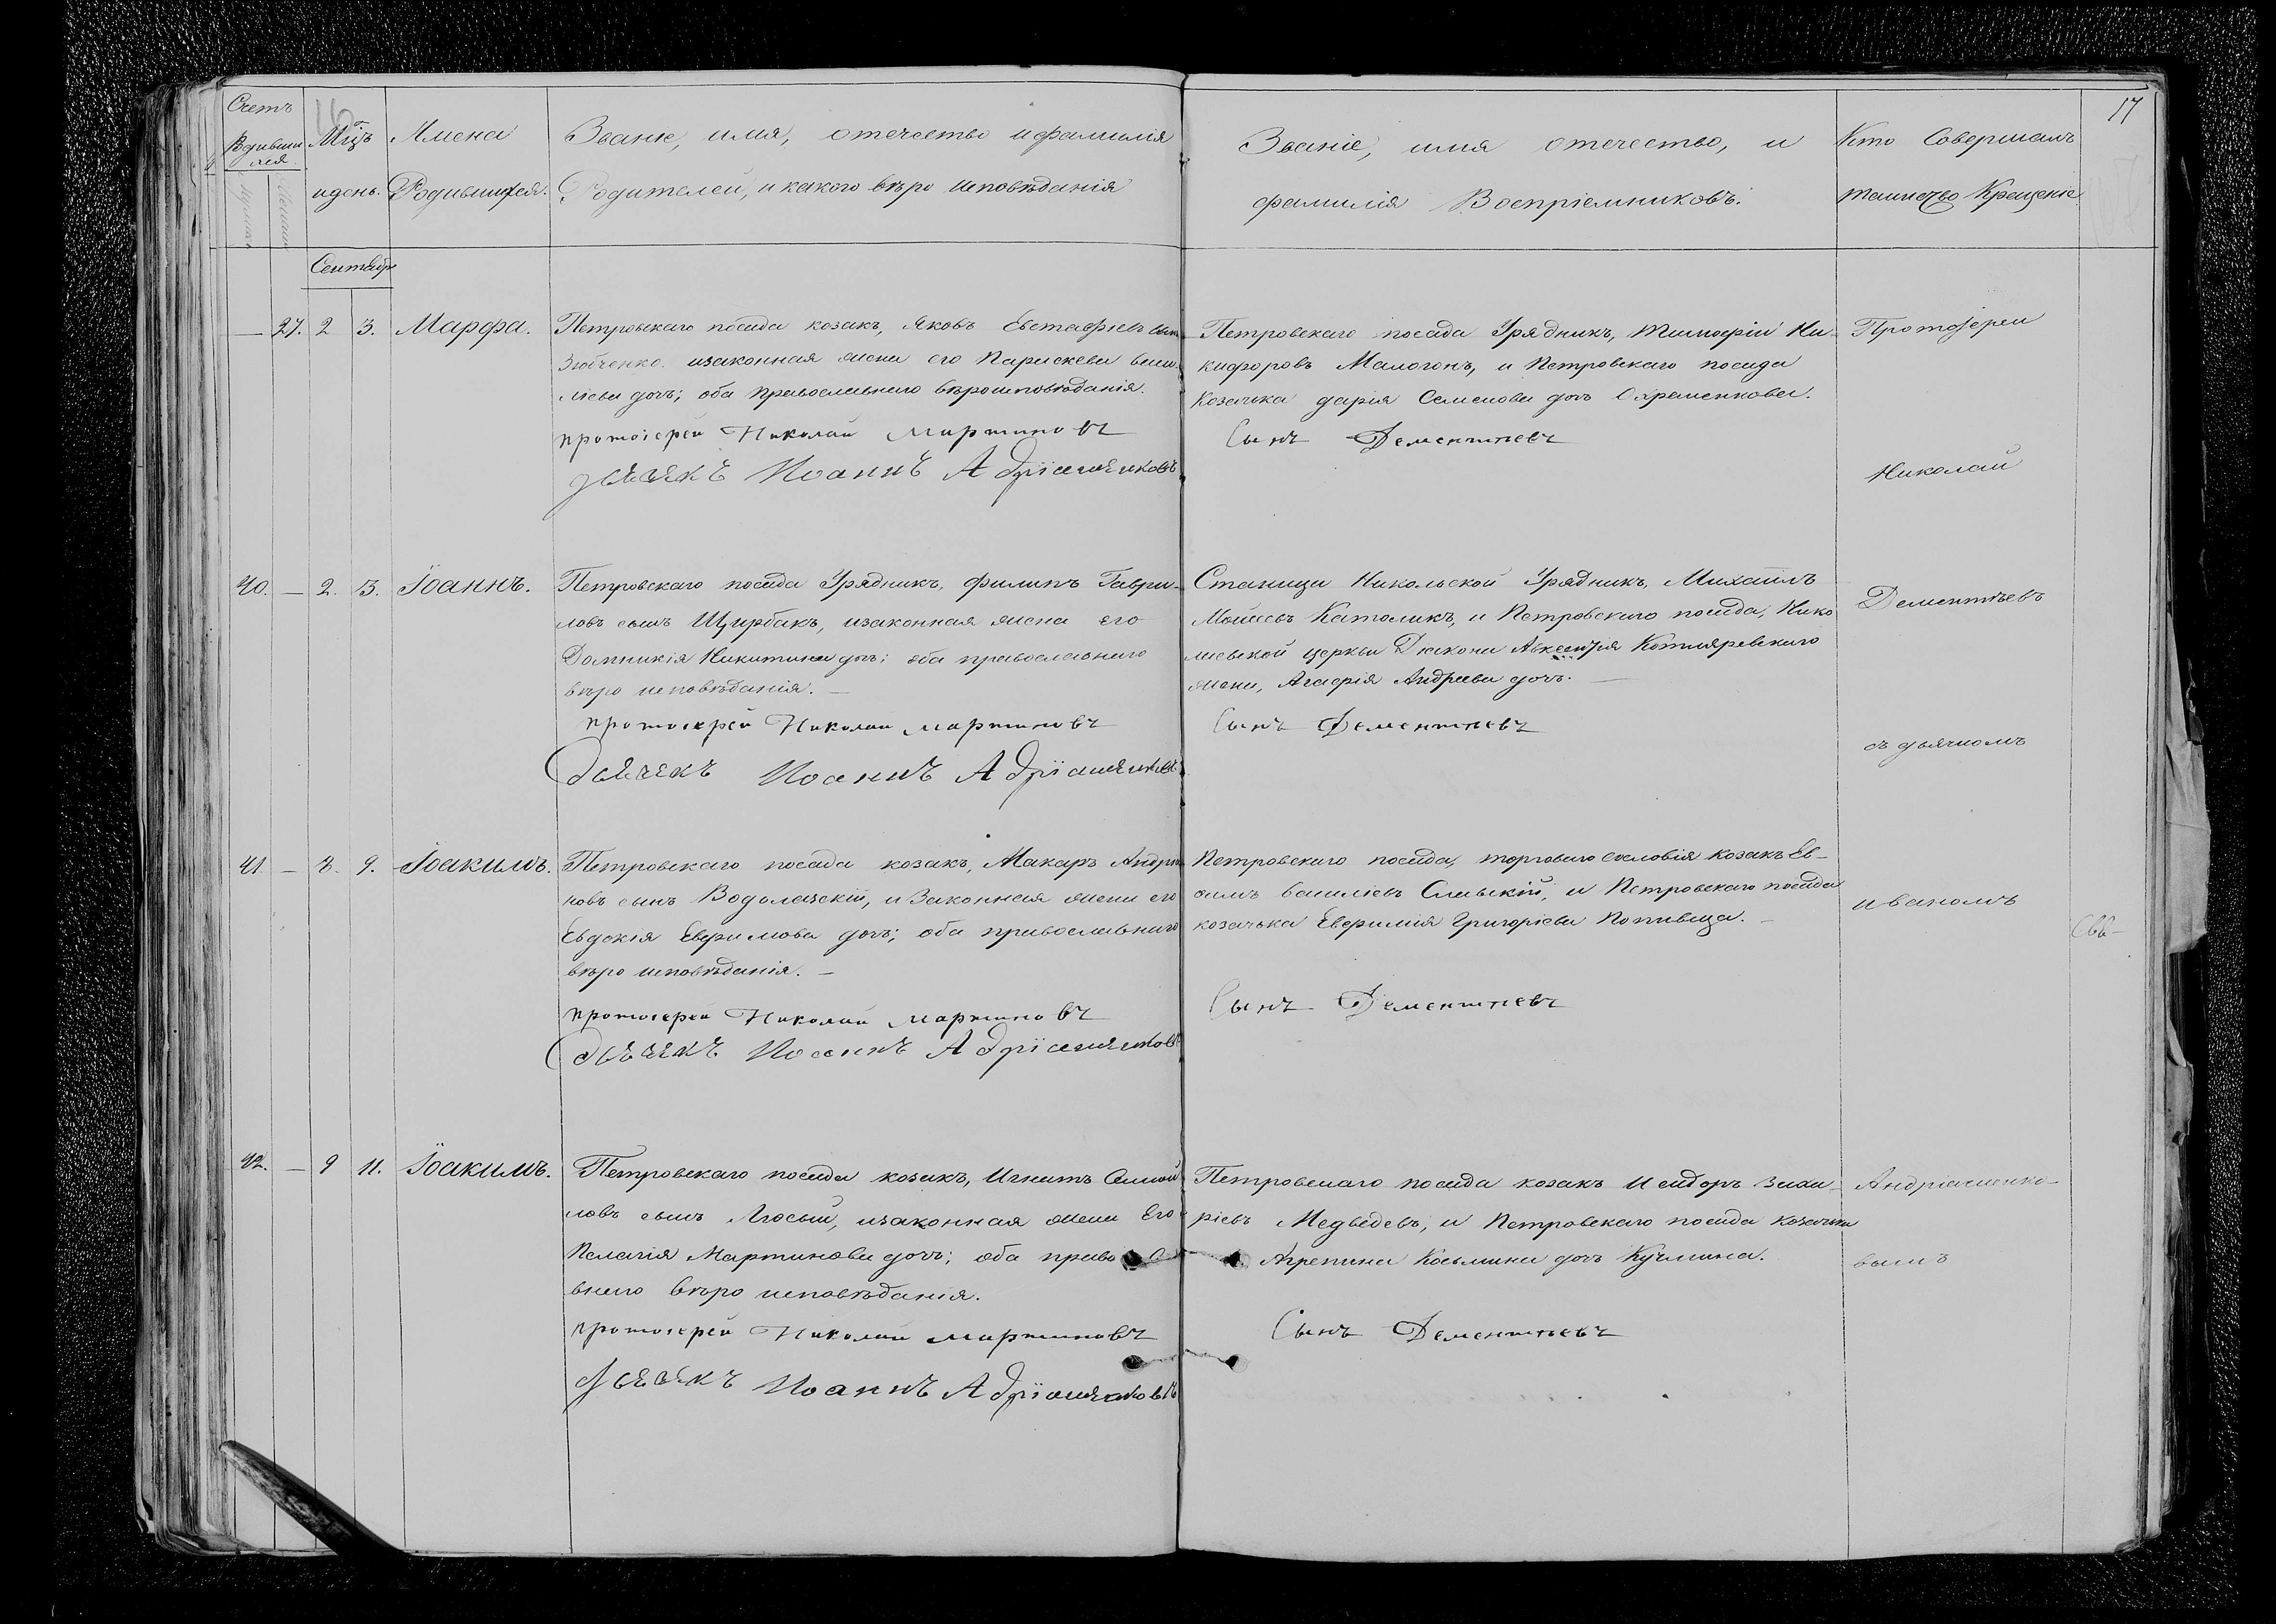 17
Счетъ
Родивши
мся.
Мцъ
и день.
Имена
Родившихся.
Званіе, имя, отечество и фамилія
Родителей, и какого вѣро исповѣданія
Званіе, имя отечество, и
фамилія Воспріемниковъ.
Кто Совершалъ
таинство Крещеніе
Сентябрь
— 27. 2 3. Марфа.
Петровскаго посада козакъ, Яковъ Евстафіевъ сынъ
Зюбченко. изаконная жена его Параскева Васи-
ліева дочь; оба православнаго вѣроисповѣданія.
протоіерей Николай Мартиновъ
дьячекъ Иоаннъ Адріяшенковъ
Петровскаго посада Урядникъ, Тимофій Ни-
кифоровъ Малогонъ, и Петровскаго посада
Козачка дарія Семенова дочь Охременкова.
Сынъ Дементіевъ
Протоіереи
Николай
40. — 2. 3. Іоаннъ.
Петровскаго посада Урядникъ, Филипъ Гаври-
ловъ сынъ Щирбакъ, изаконная жена его
Домникія Никитина дочь; оба православнаго
вѣро исповѣданія. —
протоіерей Николай Мартиновъ
Дьячекъ Иоаннъ Адріяшенковъ
Станици Никольской Урядникъ, Михаилъ
Моисеевъ Католикъ, и Петровскаго посада, Нико
лаевской церкви Діакона Авксентія Котляревскаго
жена, Агафія Андреева дочь. —
Сынъ Дементіевъ
Дементіевъ
съ дьячкомъ
41. — 8. 9. Іоакимъ.
Петровскаго посада козакъ, Макаръ Андрія
новъ сынъ Водолазскій, и Законная жена его
Евдокія Евфимова дочь; оба православнаго
вѣро исповѣданія. —
протоіерей Николай Мартиновъ
Дьячекъ Иоаннъ Адріяшенковъ
Петровскаго посада, торговаго сословія козакъ Ев-
фимъ Василіевъ Сливскій, и Петровскаго посада
козачька Евфимія Григоріева Попивца. —
Сынъ Дементіевъ
иваномъ
42. — 9 11. Іоакимъ.
Петровскаго посада козакъ, Игнатъ Самой
ловъ сынъ Лосый, изаконная жена Его
Пелагія Мартинова дочь; оба право
внаго вѣро исповѣданія.
протоіерей Николай Мартиновъ
Дьячекъ Иоаннъ Адріяшенковъ
Петровскаго посада козакъ Исидоръ Заха-
ріевъ Медведевъ, и Петровскаго посада козачка
Агрепина Косьмина дочь Кучмина.
Сынъ Дементьевъ
Андріяшенко-
вымъ